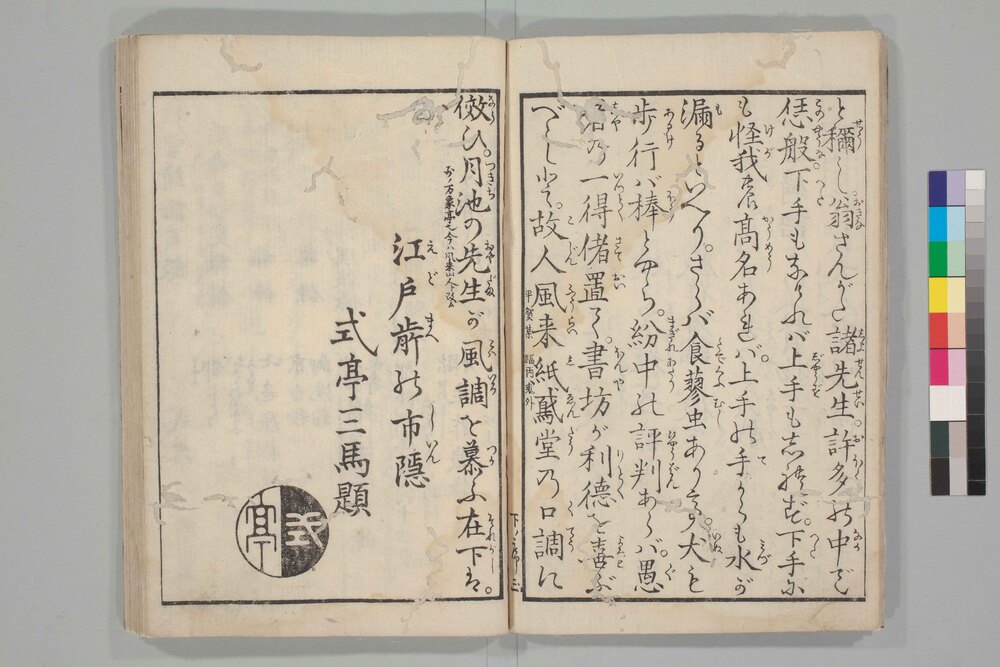 と稱し翁さんがた諸先生。許多の中で
恁般下手もあれバ上手も志れず。下手に
も怪我が高名あれバ。上手の手からも水が
漏るといへり。さらバ食蓼虫あり。犬も
歩行バ棒とやら。紛中の評判あらバ。愚
者乃一得偖置て。書坊が利徳を喜ぶ
べし。故人風来紙鳶堂乃口調に
平賀某 福内鬼外
倣ひ。月池の先生が風調を慕ふ在下は。
万象亭 今ハ風来山人
江戸前の市隠
式亭三馬題
式亭